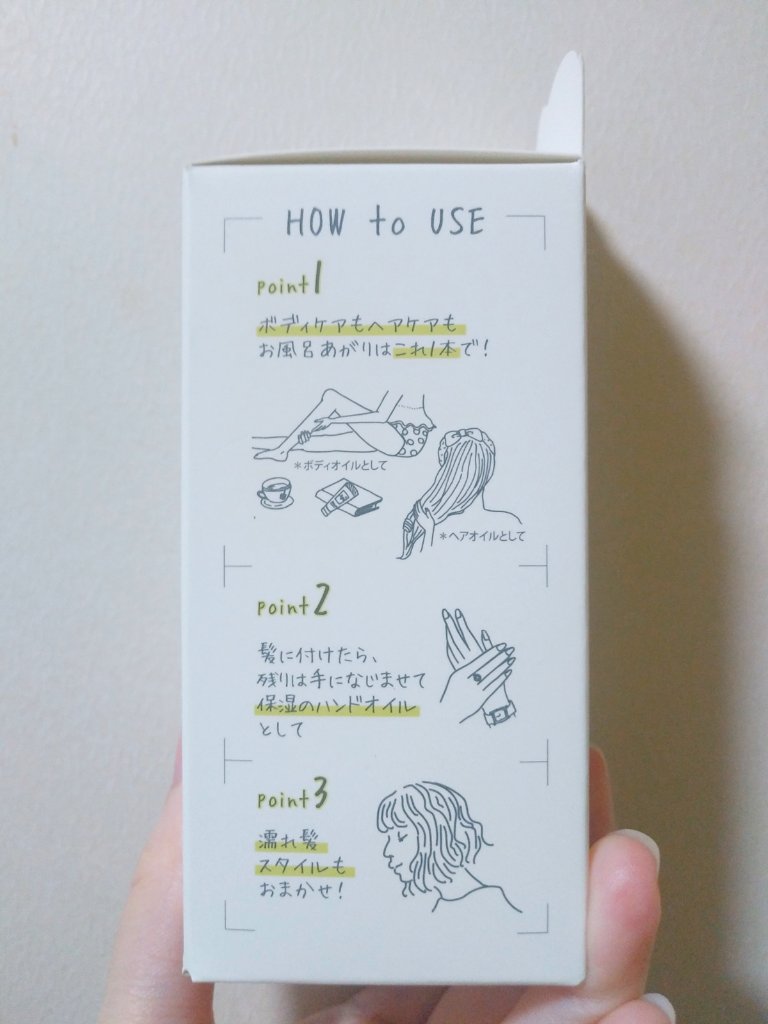 HOW to USE
point 1
ボディケアもヘアケアも
お風呂あがりはこれ1本で！
＊ボディオイルとして
＊ヘアオイルとして
point 2
髪に付けたら、
残りは手になじませて
保湿のハンドオイル
として
point 3
濡れ髪
スタイルも
おまかせ！